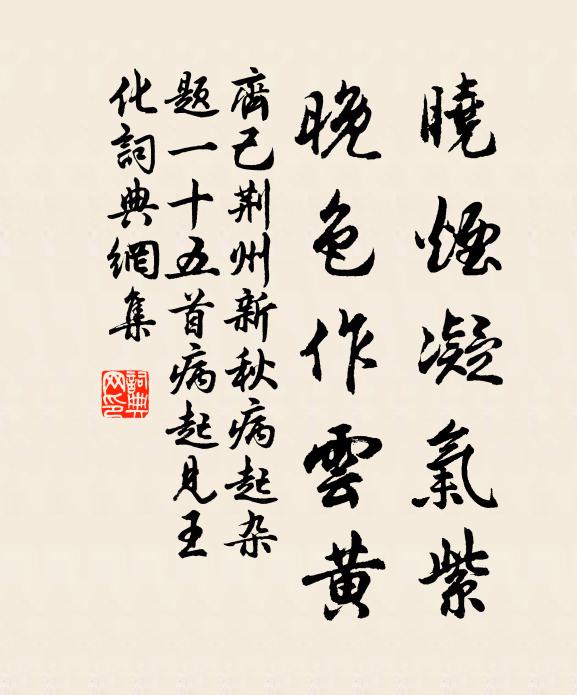 曉煙凝氣紫
晚色作雲黃
齊己荆州新秋病起杂
题一十五首病起見王
化詞典網集
詞典
网印